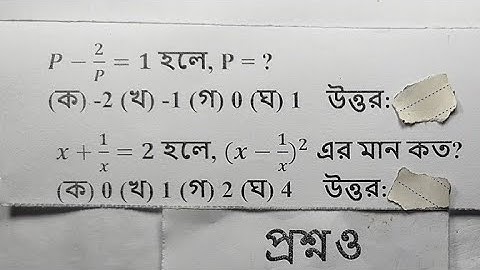 P − 2/P = 1 হলে, P = ?
(ক) -2 (খ) -1 (গ) 0 (ঘ) 1 উত্তর:
x + 1/x = 2 হলে, (x − 1/x)² এর মান কত?
(ক) 0 (খ) 1 (গ) 2 (ঘ) 4 উত্তর:
প্রশ্ন ও